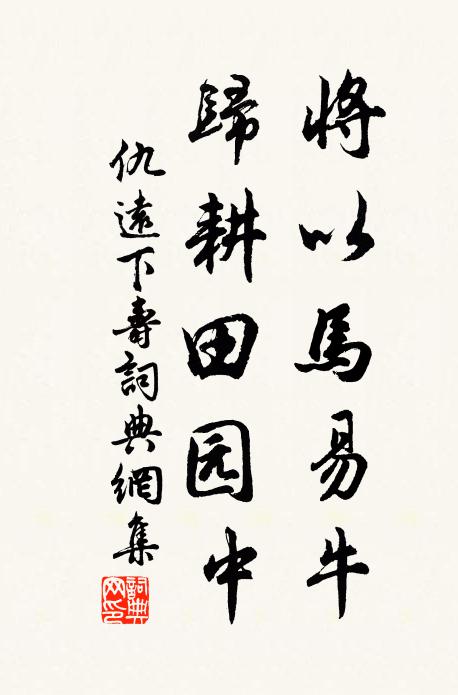 將以馬易牛
歸耕田园中
仇遠下壽詞典網集
詞典
网印